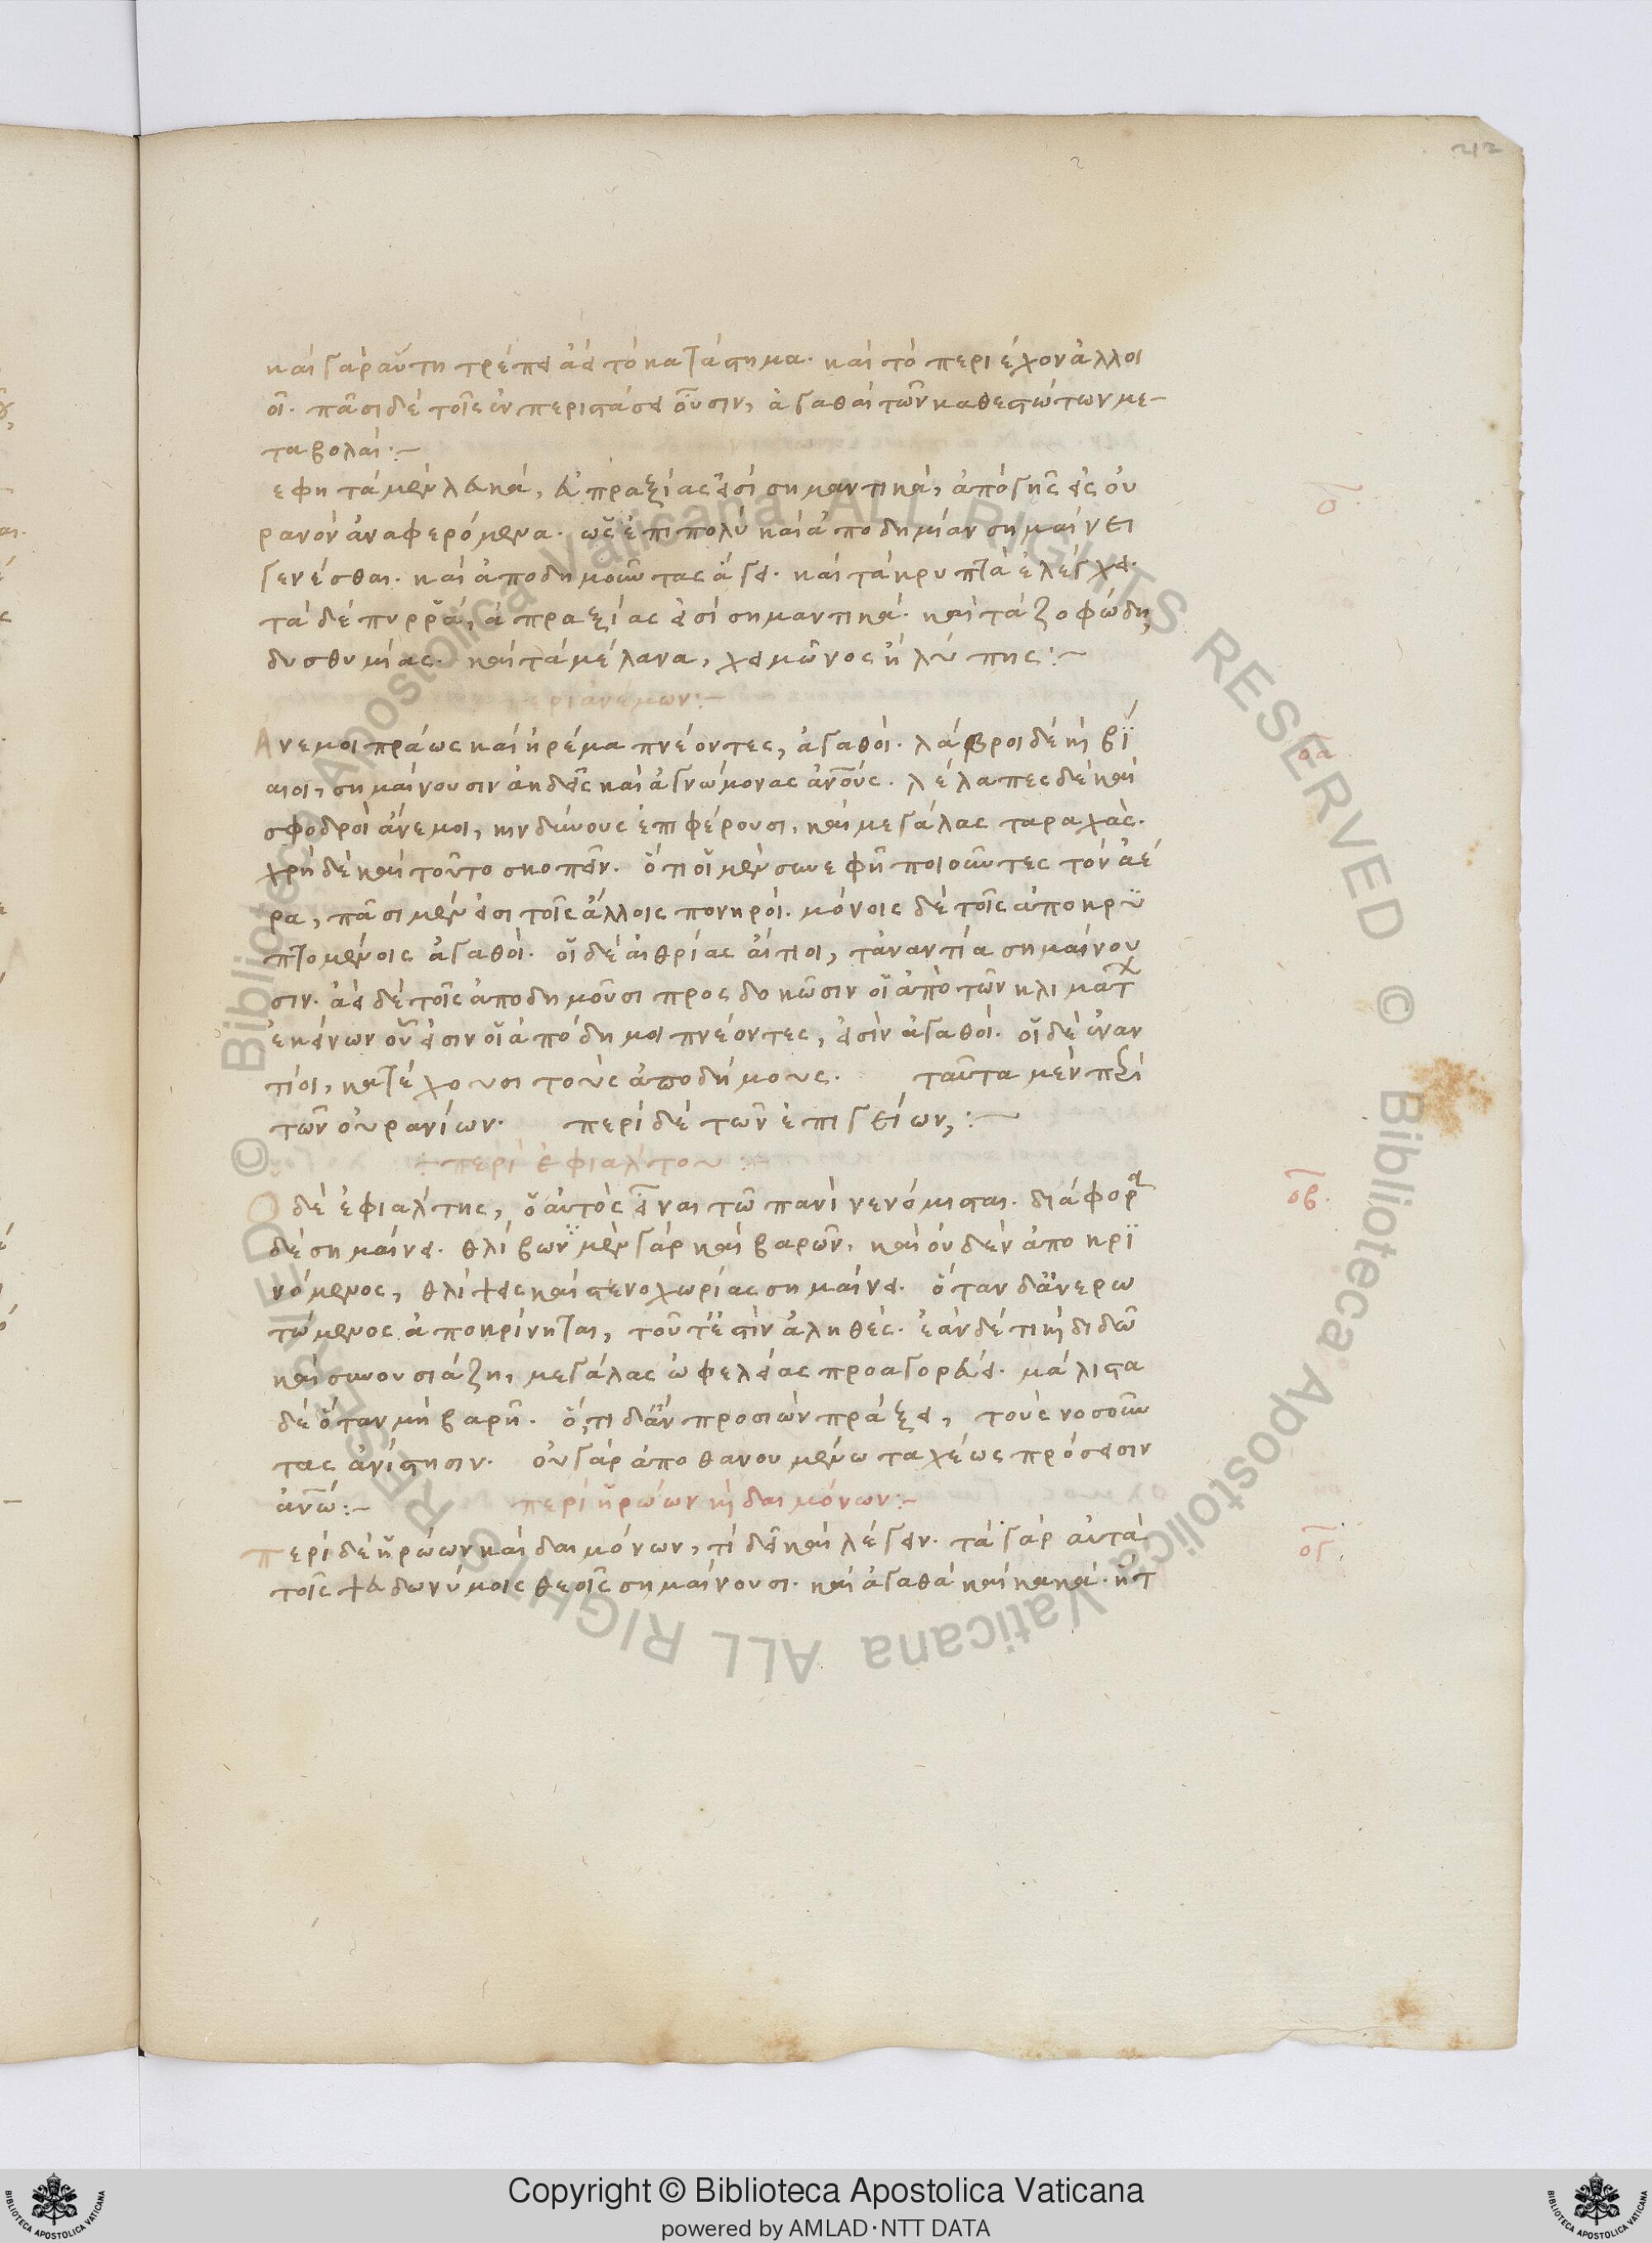 212
καὶ γὰρ αὕτη τρέπει ἀεὶ τὸ κατάστημα. καὶ τὸ περιέχον ἀλλοι
οῖ. πᾶσι δὲ τοῖς ἐν περιστάσει οὖσιν, ἀγαθαὶ τῶν καθεστώτων με-
ταβολαί:-
εφη τὰ μὲν λευκά, εὐπραξίας εἰσὶ σημαντικά, ἀπὸ γῆς εἰς οὐ
ρανὸν ἀναφερόμενα. ὡς ἐπιπολὺ καὶ ἀποδημίαν σημαίνει
γενέσθαι. καὶ ἀποδημοῦντας ἄγει. καὶ τὰ κρυπτὰ ἐλέγχει.
τὰ δὲ πυρρᾶ, ἀπραξίας εἰσὶ σημαντικά. καὶ τὰ ζοφώδη,
δυσθυμίας. καὶ τὰ μέλανα, χειμῶνος ἢ λύπης:-
περὶ ἀνέμων:-
Ἄνεμοι πράως καὶ ἠρέμα πνέοντες, ἀγαθοί. λάβροι δὲ κὶ βί
αιοι, σημαίνουσιν ἀηδεῖς καὶ ἀγνώμονας ἀνους. λέλαπες δὲ καὶ
σφοδροὶ ἄνεμοι, κινδύνους ἐπιφέρουσι, καὶ μεγάλας ταραχάς.
χρὴ δὲ καὶ τοῦτο σκοπεῖν. ὅτι οἱ μὲν συνεφῆ ποιοῦντες τὸν ἀέ
ρα, πᾶσι μέν εἰσι τοῖς ἄλλοις πονηροί. μόνοις δὲ τοῖς ἀποκρυ
πτομένοις ἀγαθοί. οἱ δὲ αἰθρίας αἴτιοι, τἀναντία σημαίνου
σιν. ἀεὶ δὲ τοῖς ἀποδημοῦσι προςδοκῶσιν οἱ ἀπὸ τῶν κλιμάτ
ἐκείνων οὗ εἰσιν οἱ ἀπόδημοι πνέοντες, εἰσὶν ἀγαθοί. οἱ δὲ ἐναν
τίοι, κατέχουσι τοὺς ἀποδήμους. ταῦτα μὲν περὶ
τῶν οὐρανίων. περὶ δὲ τῶν ἐπιγείων,:-
+ περὶ ἐφιάλτου:-
Ὁ δὲ ἐφιάλτης, ὁ αὐτὸς εἶναι τῶ πανὶ νενόμισται. διάφορα
δὲ σημαίνει. θλίβων μὲν γὰρ καὶ βαρῶν, καὶ οὐδὲν ἀποκρι
νόμενος, θλίψεις καὶ στενοχωρίας σημαίνει. ὅταν δἂν ερω
τώμενος ἀποκρίνηται, τοῦτ' ἐστὶν ἀληθές. ἐὰν δέ τι κὶ διδῶ
καὶ συνουσιάζη, μεγάλας ὠφελείας προαγορεύει. μάλιστα
δὲ ὅταν μὴ βαρῆ. ὅ,τι δἂν προσιὼν πράξει, τοὺς νοσοῦν
τας ἀνίστησιν. οὐ γὰρ ἀποθανουμένω ταχέως πρόσεισιν
ἀνω:- περὶ ἡρώων κὶ δαιμόνων:-
Περὶ δὲ ἡρώων καὶ δαιμόνων, τί δεῖ καὶ λέγειν. τὰ γὰρ αὐτὰ
τοῖς ψευδωνύμοις θεοῖς σημαίνουσι. καὶ ἀγαθὰ καὶ κακά. ἥτ
ο
οα
οβ.
ογ.
© Biblioteca Apostolica Vaticana ALL RIGHTS RESERVED © Biblioteca Apostolica Vaticana ALL RIGHTS RESERVED
Copyright © Biblioteca Apostolica Vaticana
powered by AMLAD·NTT DATA
BIBLIOTECA APOSTOLICA VATICANA
BIBLIOTECA APOSTOLICA VATICANA